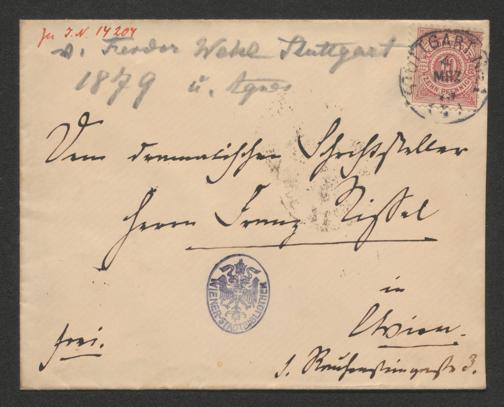 zu I.N. 14204
v. Feodor Wehl Stuttgart
1879 u. Agnes
STUTTGART
MRZ
ZEHN PFENNIG
Dem dramatischen Schriftsteller
Herrn Franz Nissel
in
Wien.
frei.
WIENER-STADTBIBLIOTHEK
3.